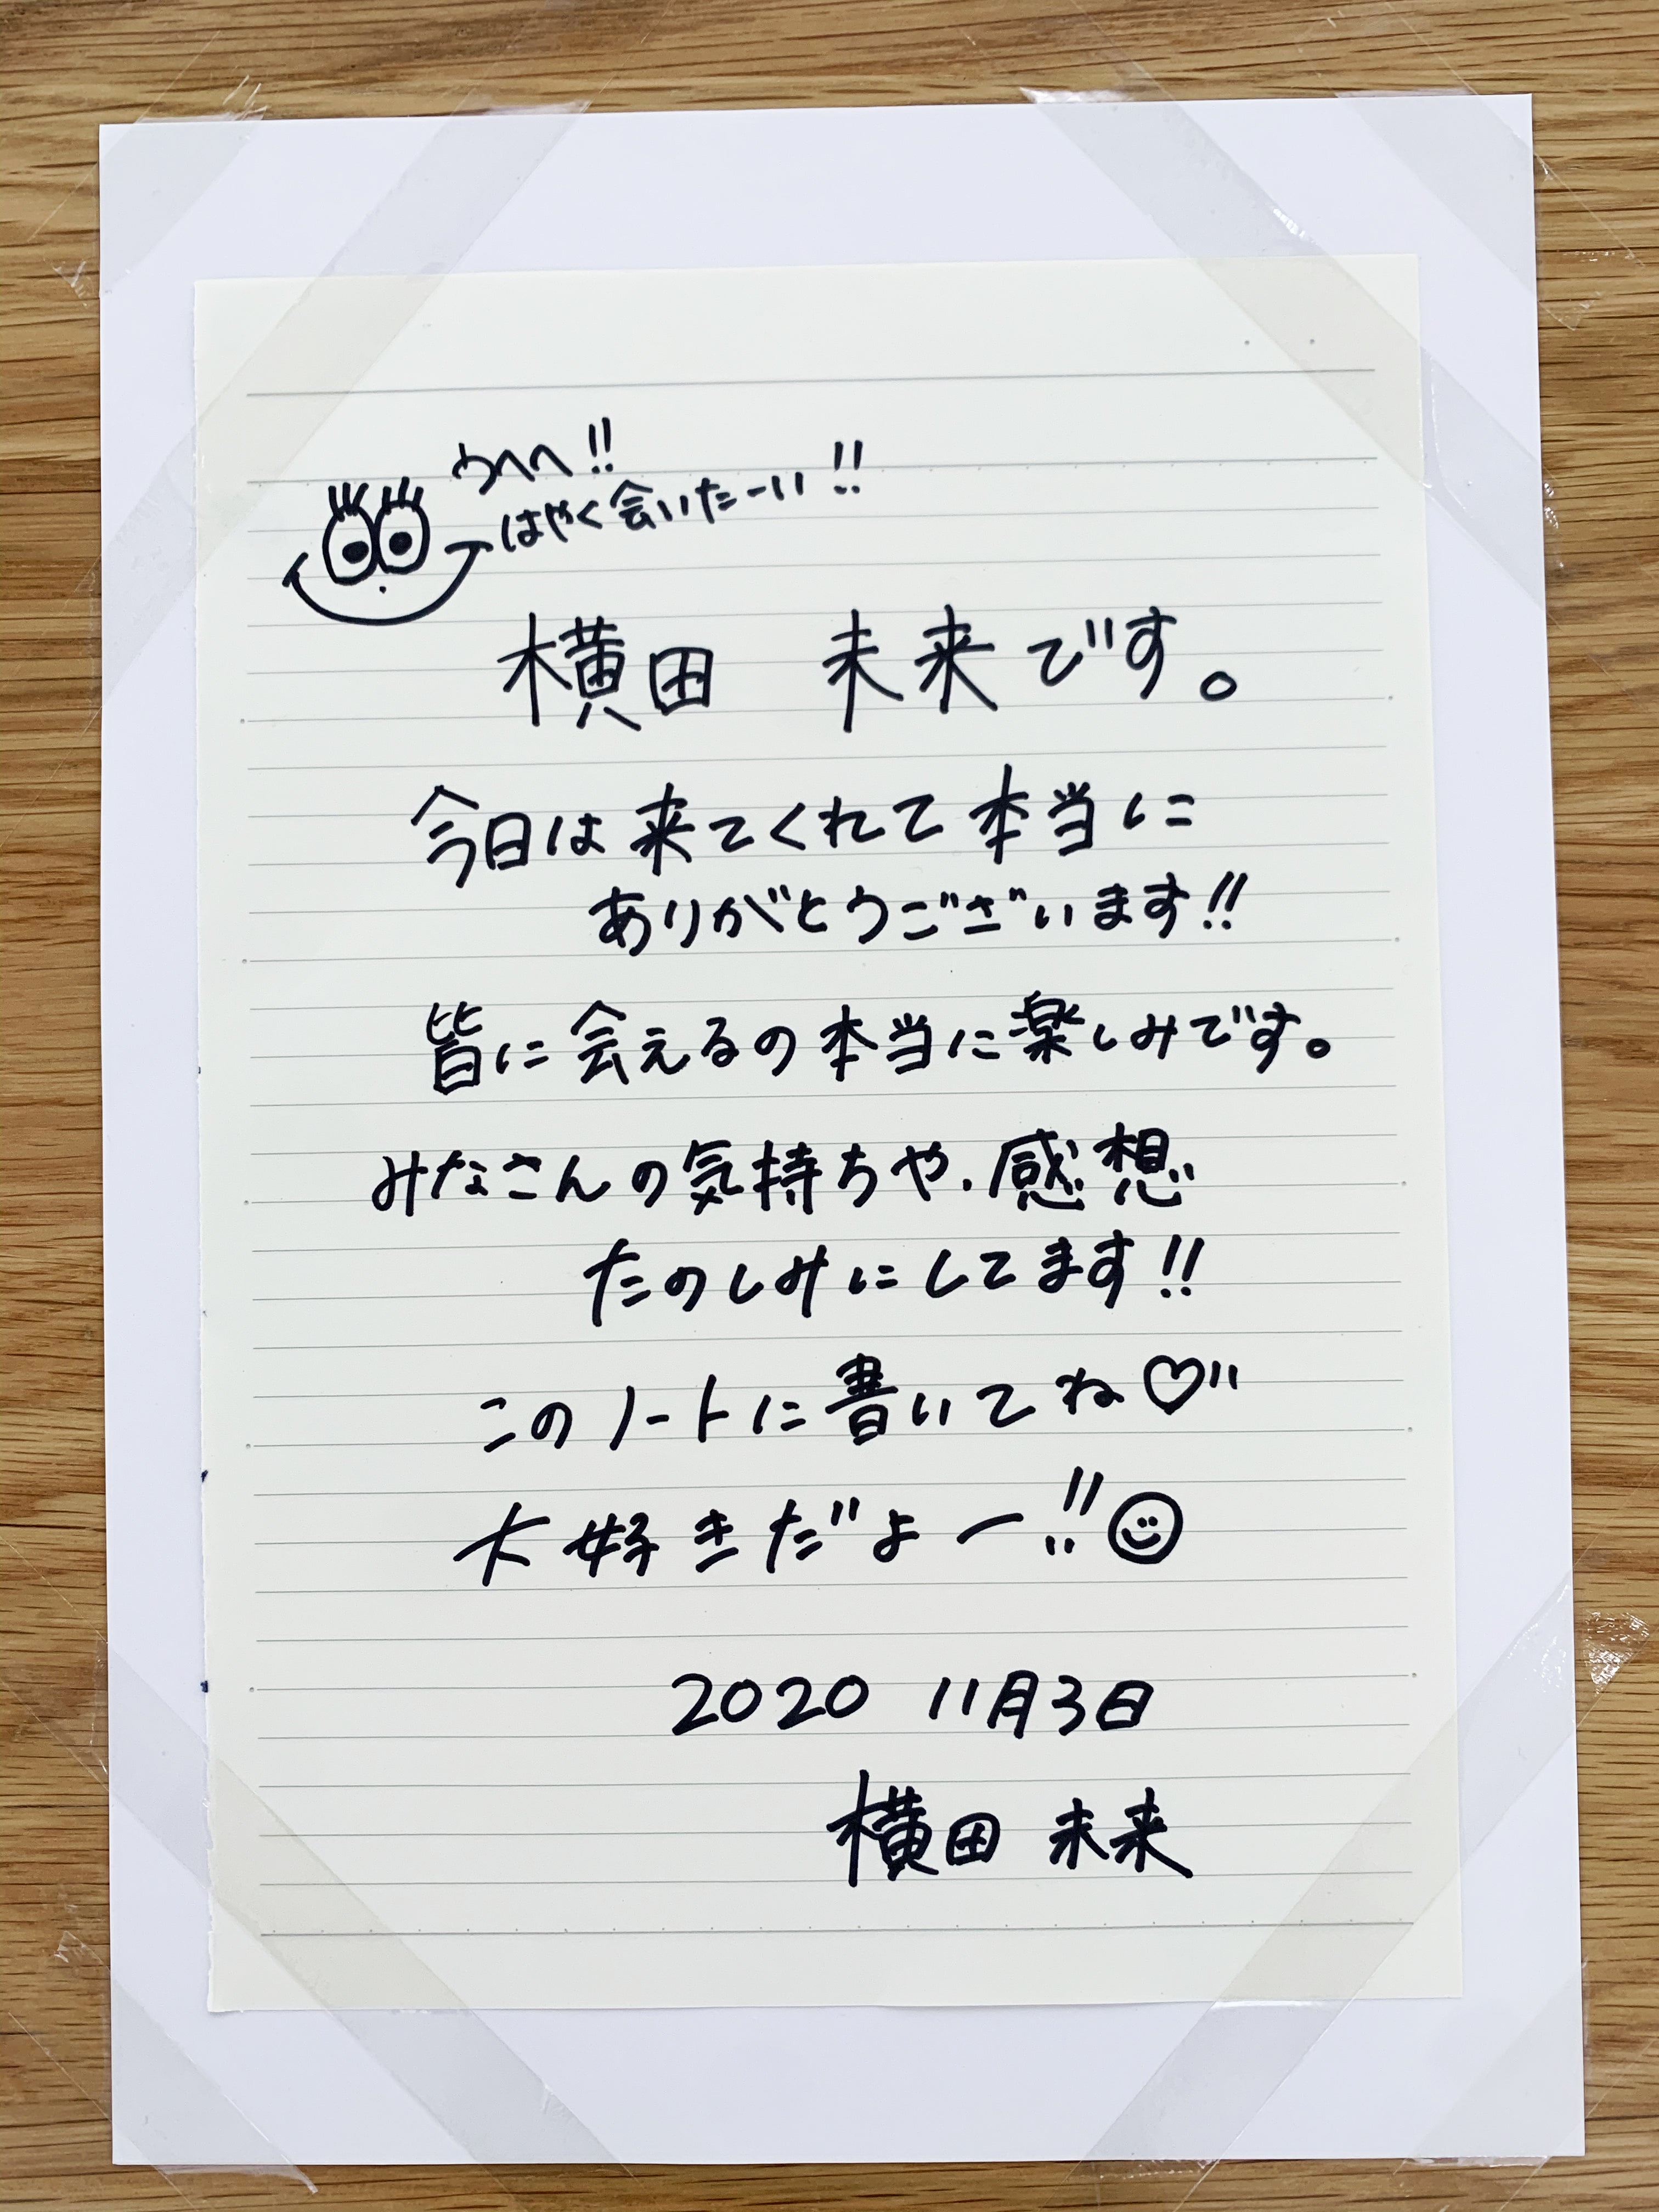 うへへ!!
はやく会いたーい!!
横田 未来です。
今日は来てくれて本当に
ありがとうございます!!
皆に会えるの本当に楽しみです。
みなさんの気持ちや、感想
たのしみにしてます!!
このノートに書いてね♡"
大好きだよー!!☺
2020 11月3日
横田 未来